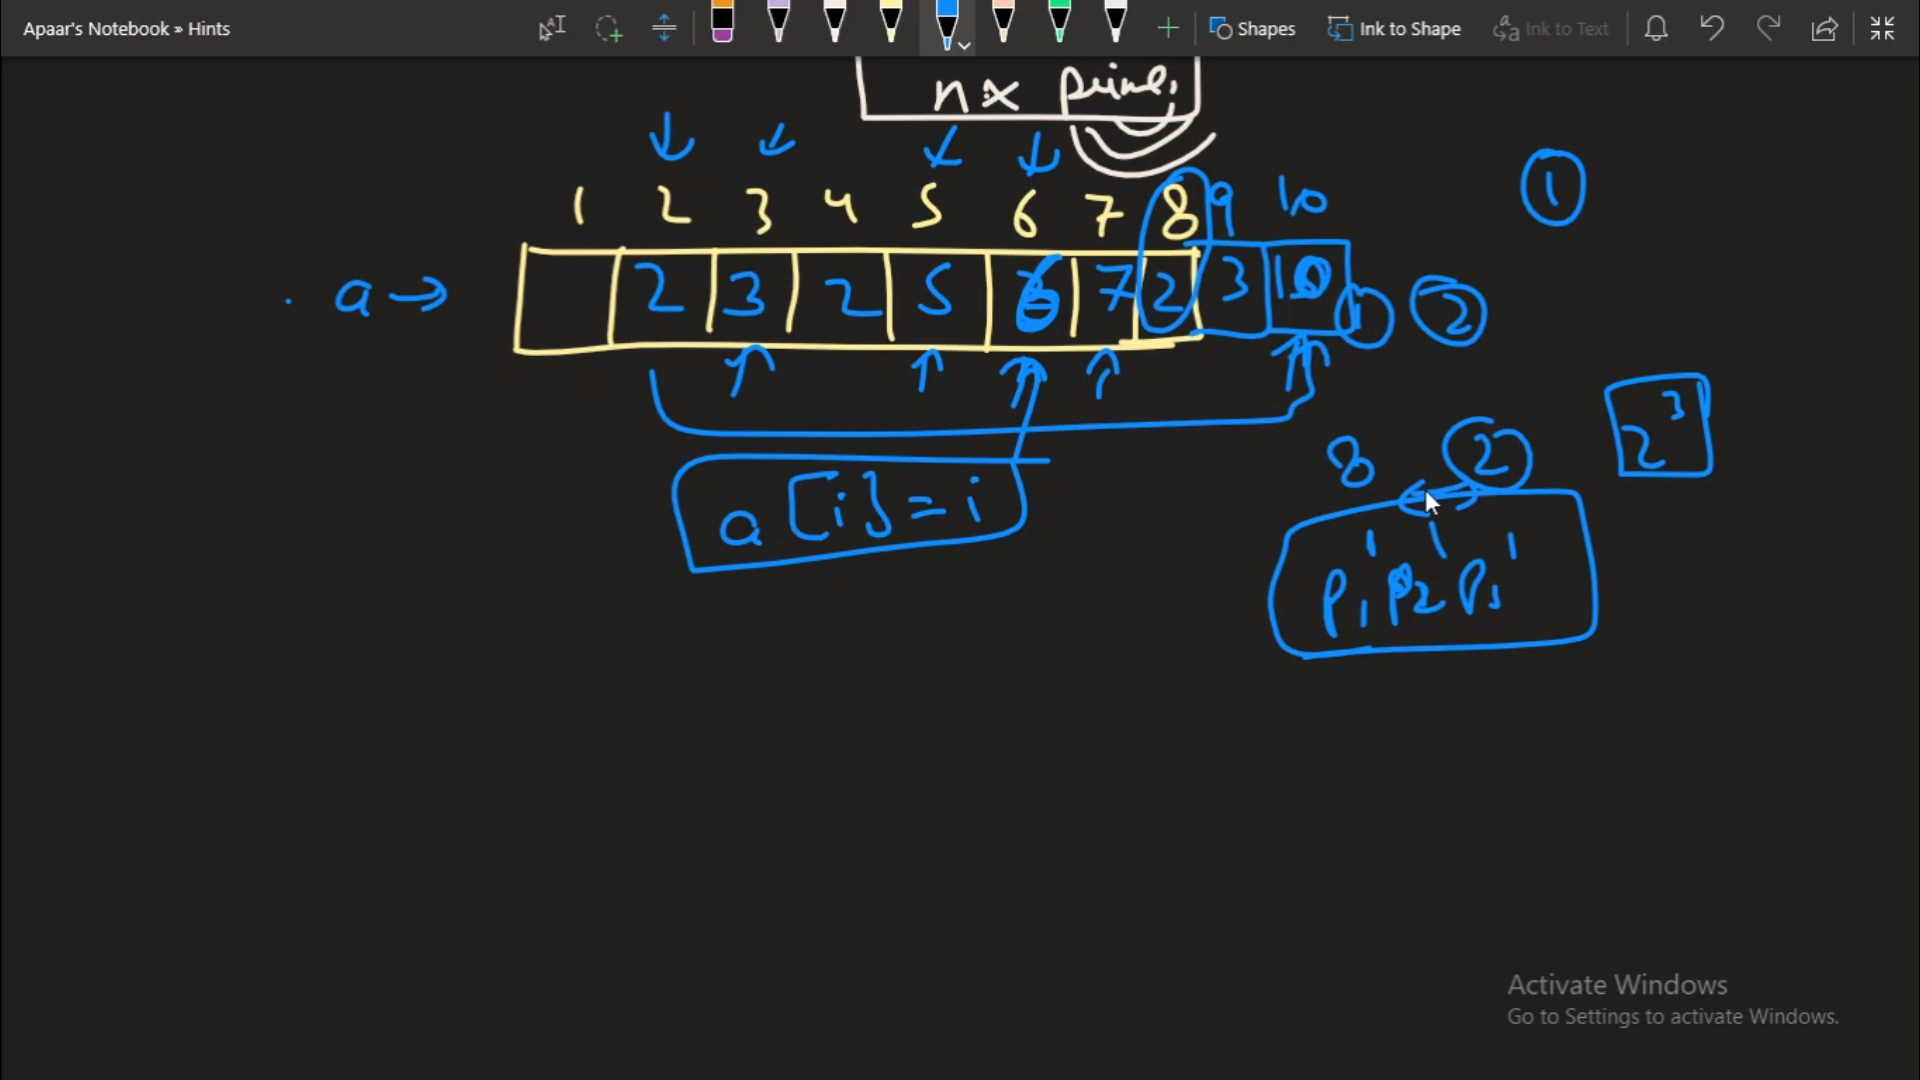 Apaar's Notebook » Hints
Shapes
Ink to Shape
Ink to Text
n x prime,
1 2 3 4 5 6 7 8 9 10
1
a → 2 3 2 5 6 7 2 3 10
1 2
2³
8 2
a[i] = i
1 1 1
P₁ P₂ P₃
Activate Windows
Go to Settings to activate Windows.